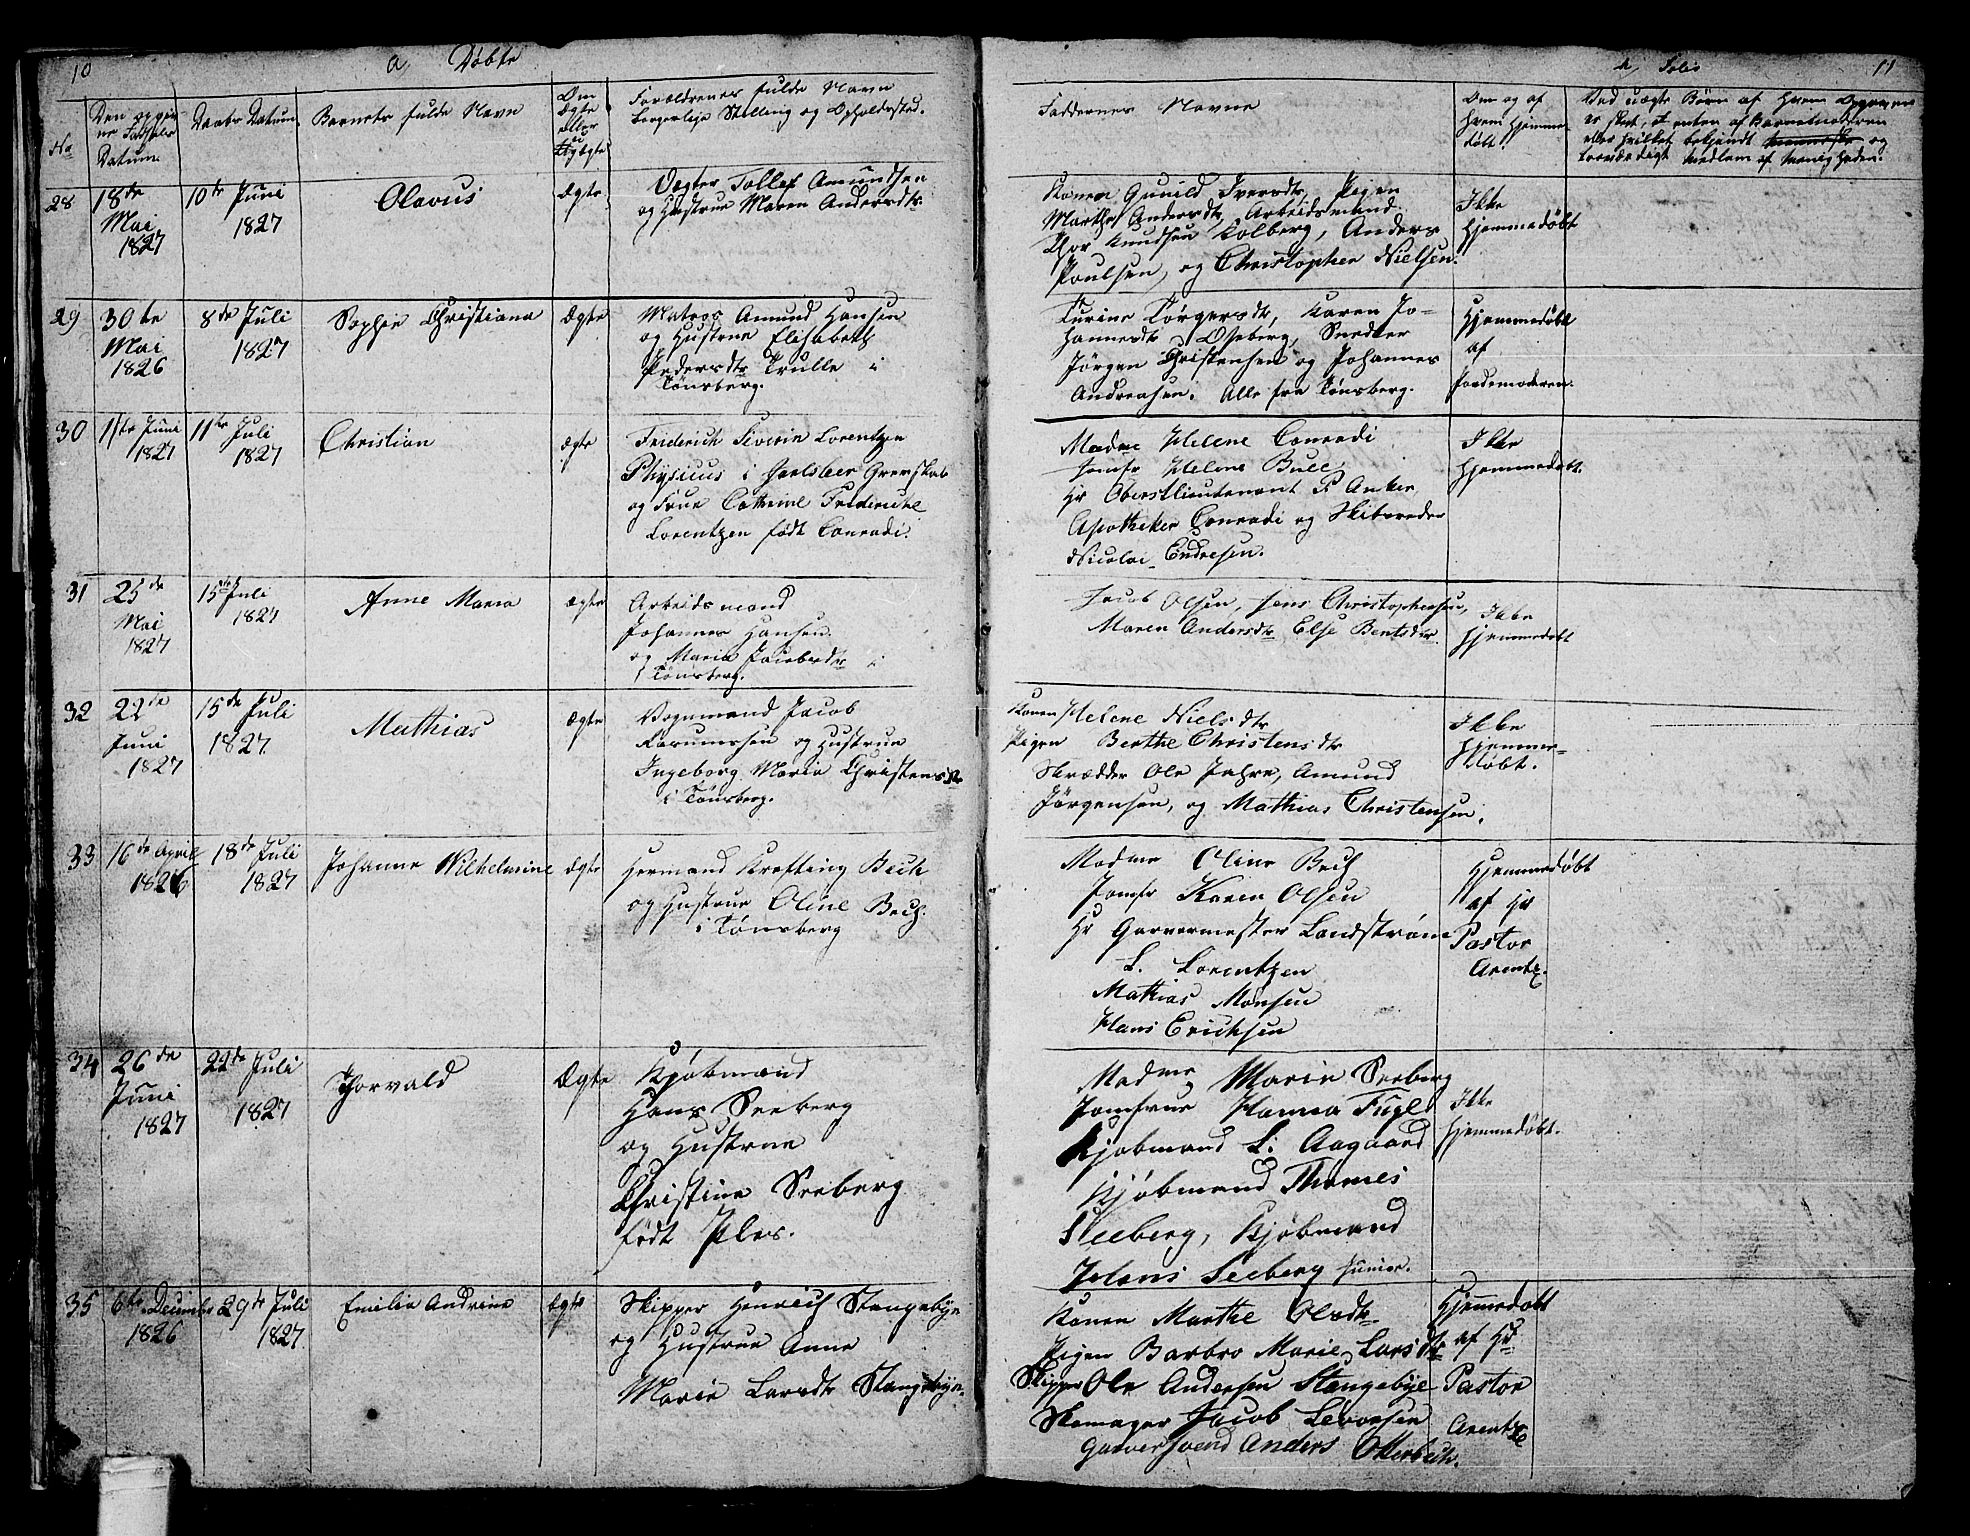 10
a, Døbte
No
Den opgivne Fødsels Datum.
Daabs Datum.
Barnets fulde Navn
Om Ægte eller Uægte
Forældrenes fulde Navn
borgerlige Stilling og Opholdssted.
28
18de Mai 1827
10de Juni 1827
Olavus
Ægte
Vægter Tollef Amundsen
og Hustrue Maren Andersdtr.
29
30te Mai 1826
8de Juli 1827
Sophie Christiana
Ægte
Matros Amund Hansen
og Hustrue Elisabeth
Pedersdtr Trulle i
Tønsberg.
30
11te Juni 1827
11te Juli 1827
Christian
ægte
Friderich Siverin Lorentzen
Physicus i Jarlsber Grevskab
og Frue Cathrine Friderikke
Lorentzen født Conradi.
31
25de Mai 1827
15de Juli 1827
Anne Maria
ægte
Arbeidsmand
Johannes Hansen
og Maria Jacobsdtr i
Tønsberg.
32
22de Juni 1827
15de Juli 1827
Mathias
ægte
Vognmand Jacob
Rasmussen og Hustrue
Ingeborg Maria Christensdtr
i Tønsberg.
33
16de April 1826
18de Juli 1827
Johanne Wilhelmine
ægte
Hermand Krefting Bech
og Hustrue Oline Bech.
i Tønsberg
34
26de Juni 1827
22de Juli 1827
Thorvald
Ægte
Kjøbmand
Hans Seeberg
og Hustrue
Christine Seeberg
født Ples.
35
6te Decimbr 1826
29de Juli 1827
Emilie Andrine
ægte
Skipper Henrich Stangebye
og Hustrue Anne
Marie Larsdtr Stangebye.
11
Faddernes Navne
Om og af hvem Hjemmedøbt.
Ved uægte Børn af hvem Opgiven
er skeet, et enten af Barnemoderen
eller hvilket bekjendt og
troværdigt Medlem af Menigheden.
Konen Gunild Iversdtr, Pigen
Marthe Andersdtr, Arbeidsmand
Thor Knudsen Kolberg, Anders
Poulsen, og Christopher Nielsen.
Ikke
Hjemmedøbt
Turine Tørgersdtr, Karen Jo-
hannesdtr Oseberg, Snedker
Jörgen Christensen og Johannes
Andreasen. Alle fra Tønsberg.
Hjemmedøbt
af
Jordemoderen.
Madme Helene Conradi
Jomfr Helene Bull
Hr Oberstlieutenant P. Anker
Apotheker Conradi og Skibsreder
Nicolai Endresen.
Ikke
Hjemmedøbt.
Jacob Olsen, Jens Christophersen,
Maren Andersdtr Else Bentsdtr.
Ikke
Hjemmedøbt
Konen Helene Nielsdtr
Pigen Berthe Christensdtr
Skrædder Ole Jahre, Amund
Jørgensen, og Mathias Christensen.
Ikke
Hjemme=
døbt.
Madme Oline Bech
Jomfr Karen Olsen
Hr Garvermester Landstrøm
L. Lorentzen
Mathias Monsen
Hans Erichsen
Hjemmedøbt
af Hr
Pastor
Arentz.
Madme Marie Seeberg
Jomfrue Hanna Fugl
Kjøbmand L: Aagaard
Kjøbmand Thomes
Seeberg, Kjøbmand
Hans Seeberg junior.
Ikke
Hjemmedøbt.
Konen Marthe Olsdtr
Pigen Barbro Marie Larsdtr
Skipper Ole Andersen Stangebye
Skomager Jacob Levorsen
Garversvend Anders Otterbech.
Hjemmedøbt
af Hr
Pastor
Arentz